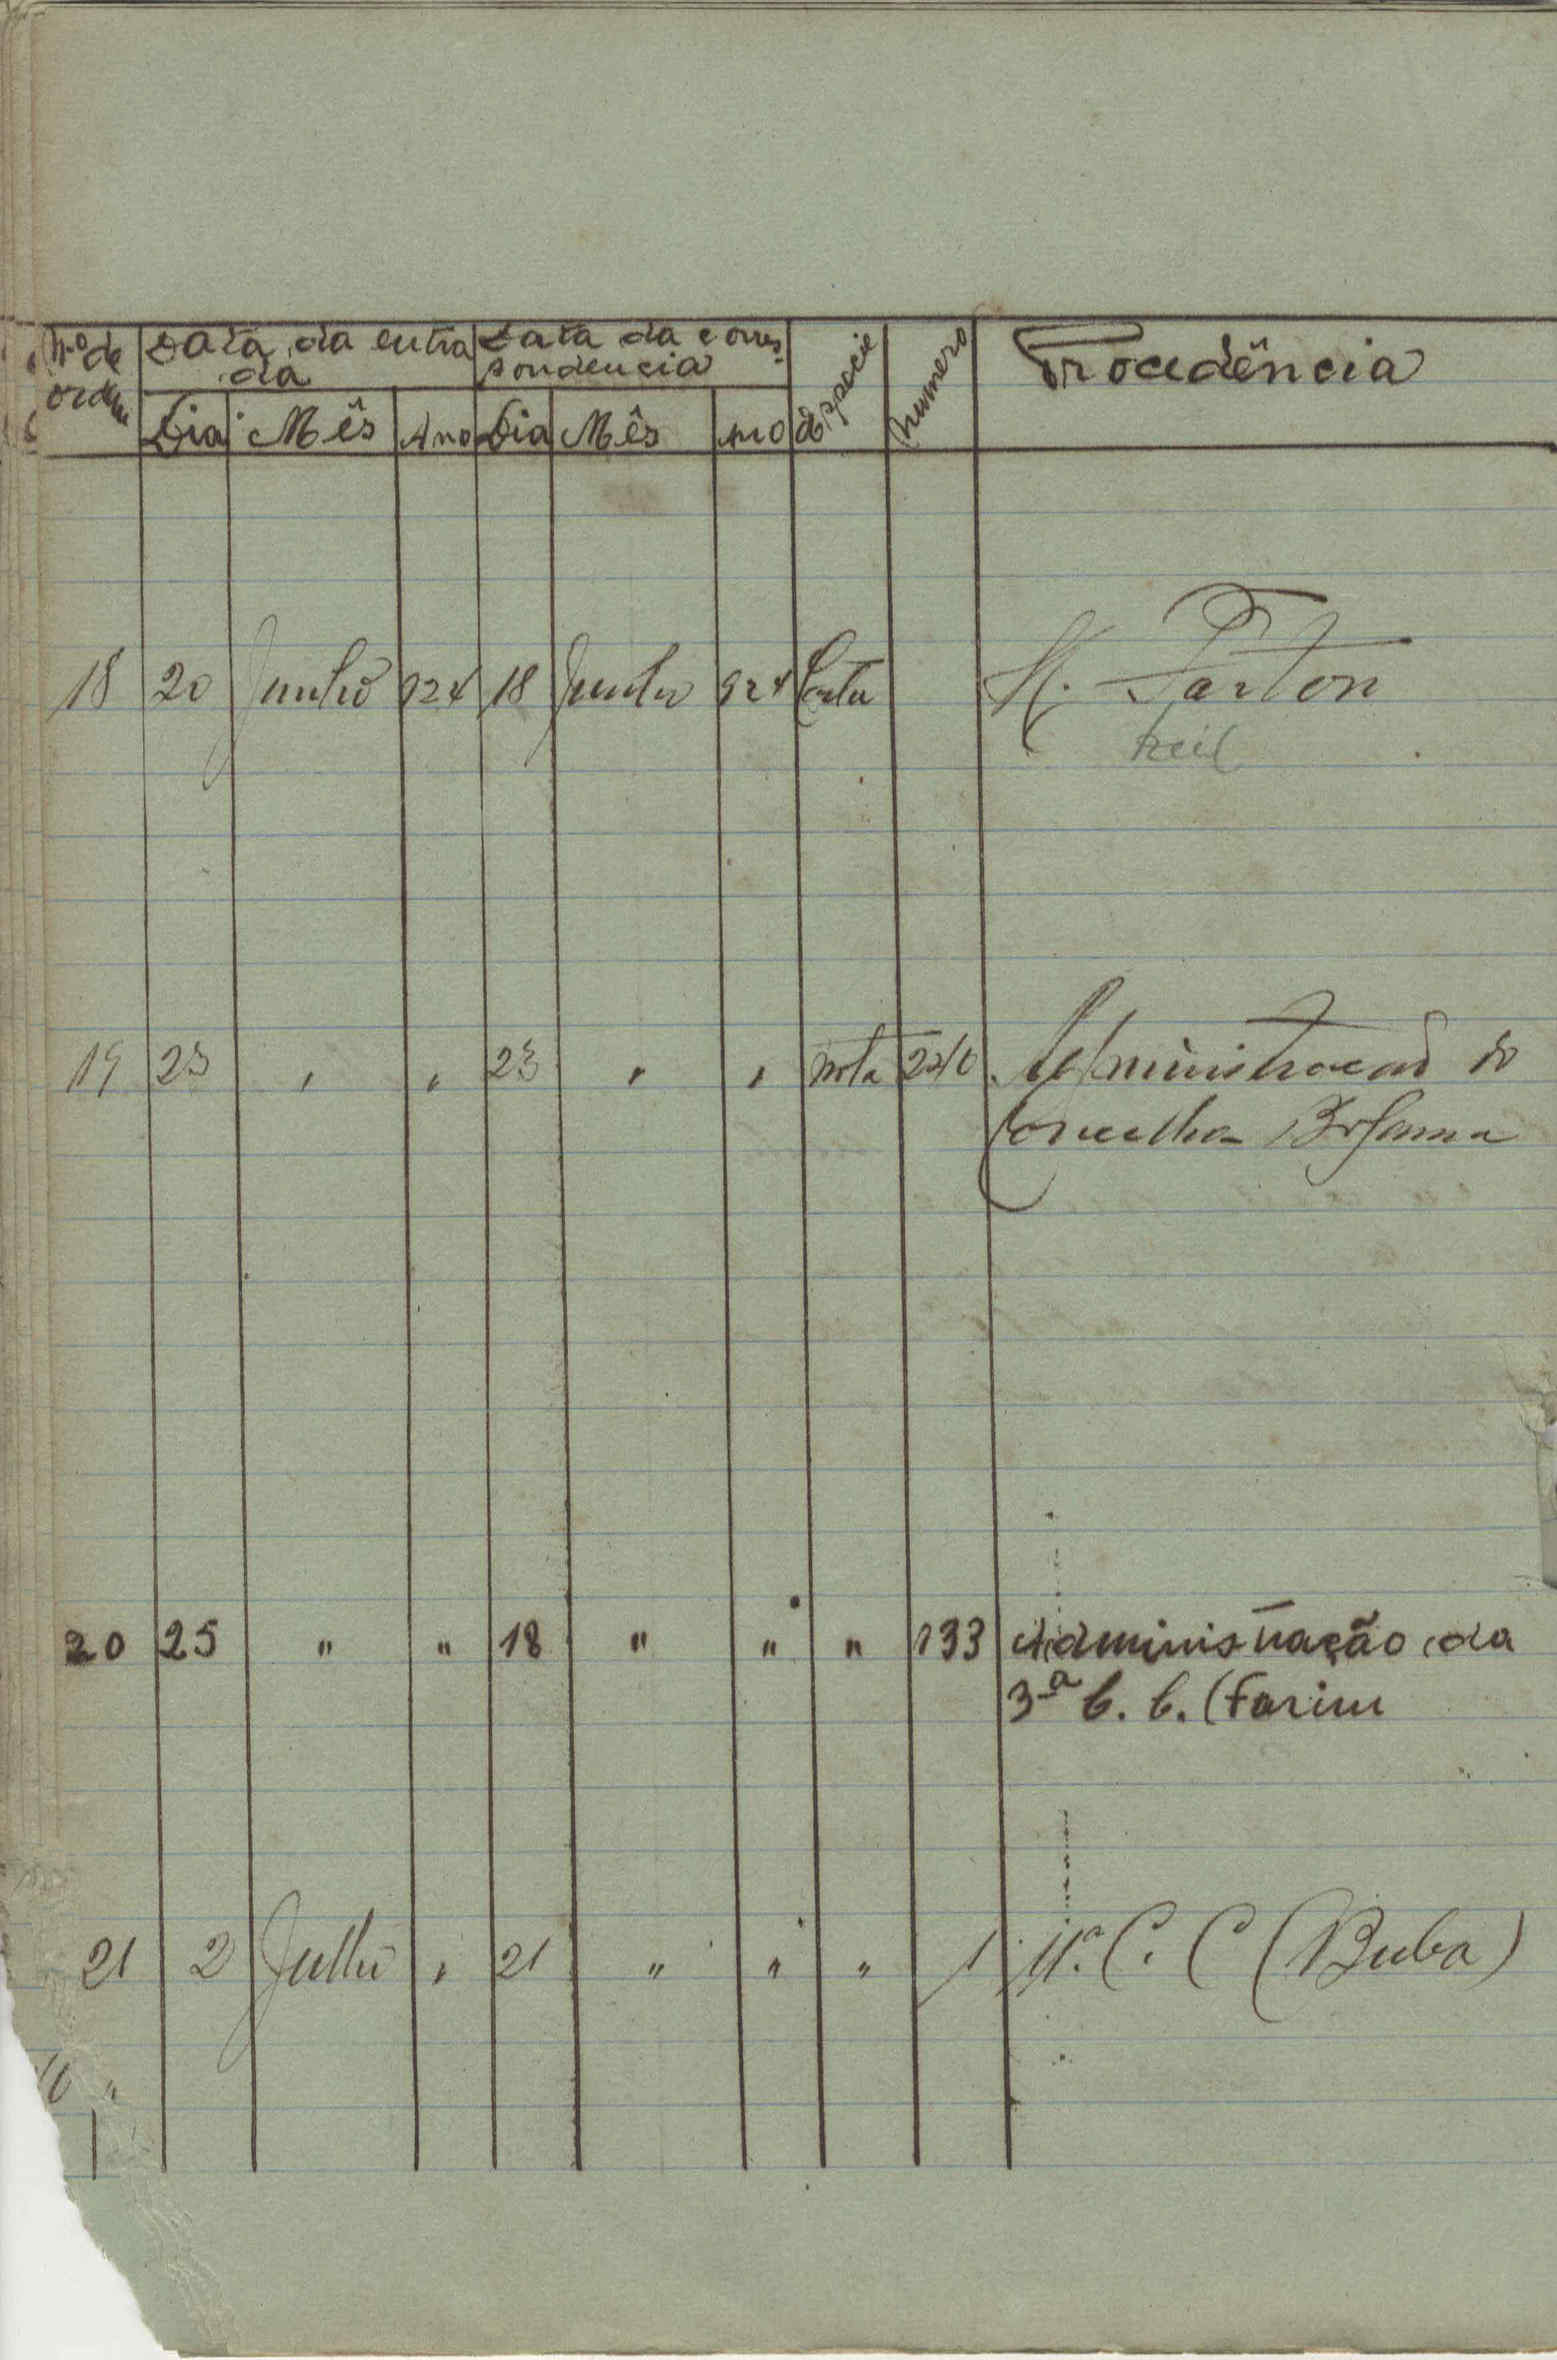 Nº de ordem Data da entrada Data da correspondencia Especie Numero Procedência
Dia Mês Ano Dia Mês Ano
18 20 Junho 924 18 Junho 924 Carta H. Parton
19 23 " " 23 " " nota Administracao do
Concelho Bolama
20 25 " " 18 " " " 133 Administração da
3-ª C. C. (Farim
21 2 Julho " 21 " " " 1 C. C (Buba)